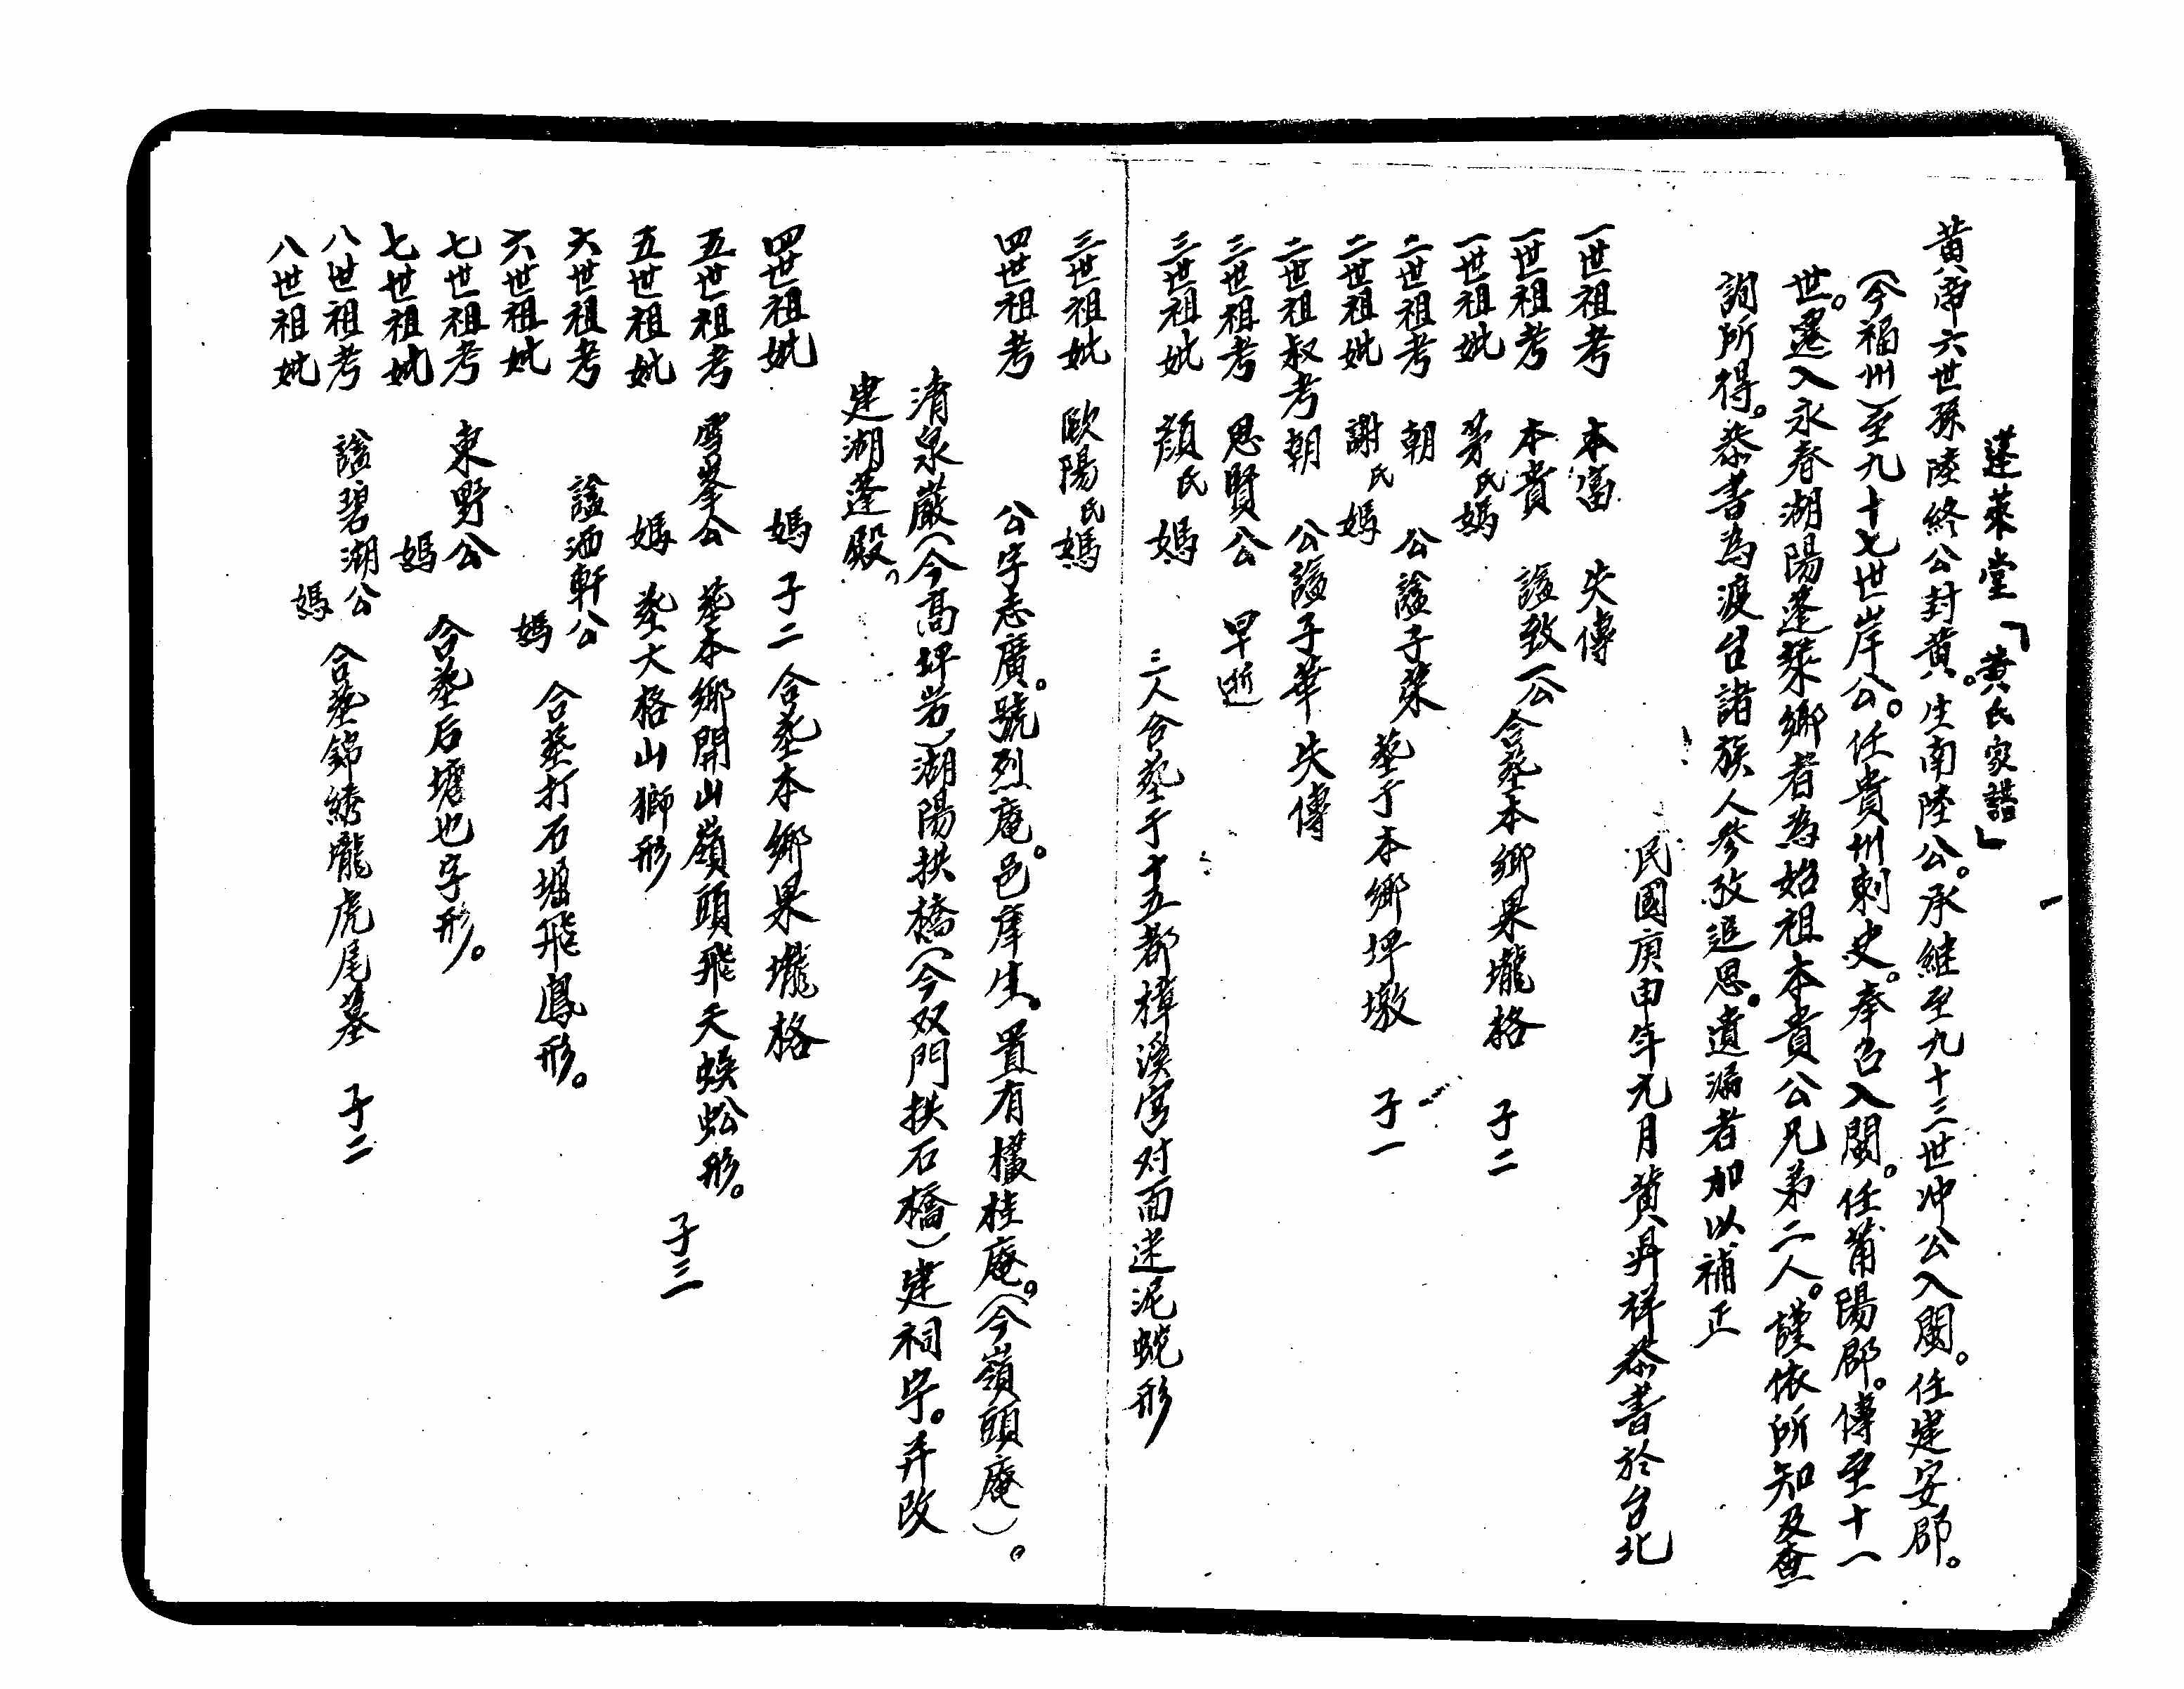 蓬萊堂「黄氏家譜」
黄帝六世孫陸終公封黄。生南陸公。承継至九十三世冲公入閩。任建安郡。
（今福州）至九十七世岸公。任貴州刺史。奉召入閩。任莆陽郡。傳至十一
世。遷入永春湖陽蓬萊鄉者為始祖本貴公兄弟二人。謹依所知及查
詢所得。恭書為渡台諸族人參攷追思。遺漏者加以補正
民國庚申年元月黄昇祥恭書於台北
一世祖考 本富 失傳
一世祖考 本貴 諡致一公 合塟本鄉果壠格 子二
一世祖妣 茅氏媽
二世祖考 朝 公諡子榮 塟于本鄉坪墩 子一
二世祖妣 謝氏媽
二世祖叔考朝 公諡子華 失傳
三世祖考 思賢公 早逝
三世祖妣 顔氏媽 三人合塟于十五都樟溪宮对面迷泥蛇形
三世祖妣 歐陽氏媽
四世祖考 公字志廣。號烈庵。邑庠生。置有檺桂庵。（今嶺頭庵）。
清泉巖（今高坪岩）湖陽拱橋（今双門拱石橋）建祠宇。并改
建湖蓬殿。
四世祖妣 媽 子二 合塟本鄉果壠格
五世祖考 雪峯公 塟本鄉開山嶺頭飛天蜈蚣形。 子三
五世祖妣 媽 塟大格山獅形
六世祖考 諡洒軒公 合塟打石堀飛鳳形。
六世祖妣 媽
七世祖考 東野公 合塟后塘也字形。
七世祖妣 媽
八世祖考 諡碧湖公 合塟錦綉壠虎尾墓 子二
八世祖妣 媽